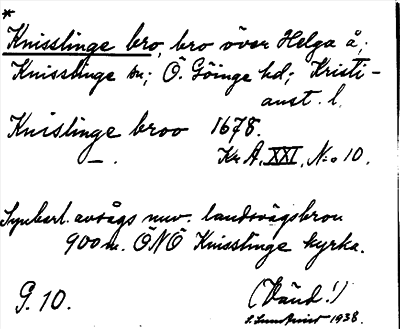 *
Knisslinge bro, bro över Helga å,
Knisslinge sn; Ö. Göinge hd; Kristi-
anst. l.
Knislinge broo 1678.
—. Kr A. XXI. N:o 10.
Synbarl. avsågs nuv. landsvägsbron
900 m. ÖNÖ Knisslinge kyrka.
G. 10. (Vänd!)
1938